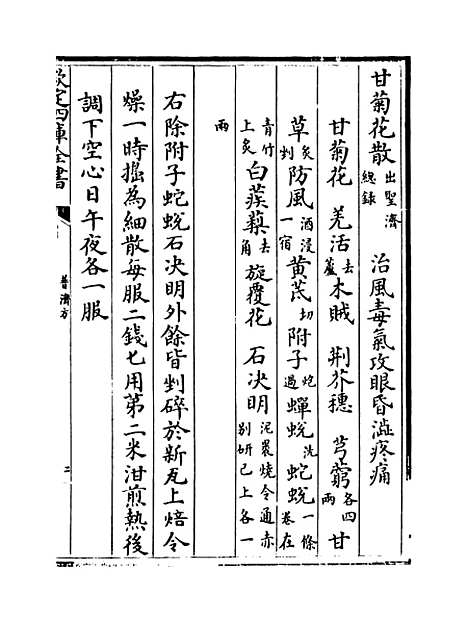 甘菊花散出聖濟總録 治風毒氣攻眼昏澁疼痛
甘菊花 羌活去蘆 木賊 荆芥穗 芎藭各四兩 甘
草炙剉 防風酒浸一宿 黃芪切 附子炮過 蟬蜕洗 蛇蜕一條卷在
青竹上炙 白蒺藜去角 旋覆花 石决明泥裹燒令通赤别妍已上各一
兩
右除附子蛇蜕石决明外餘皆剉碎於新瓦上焙令
燥一時搗為細散每服二錢七用第二米泔煎熟後
調下空心日午夜各一服
欽定四庫全書
普濟方
二